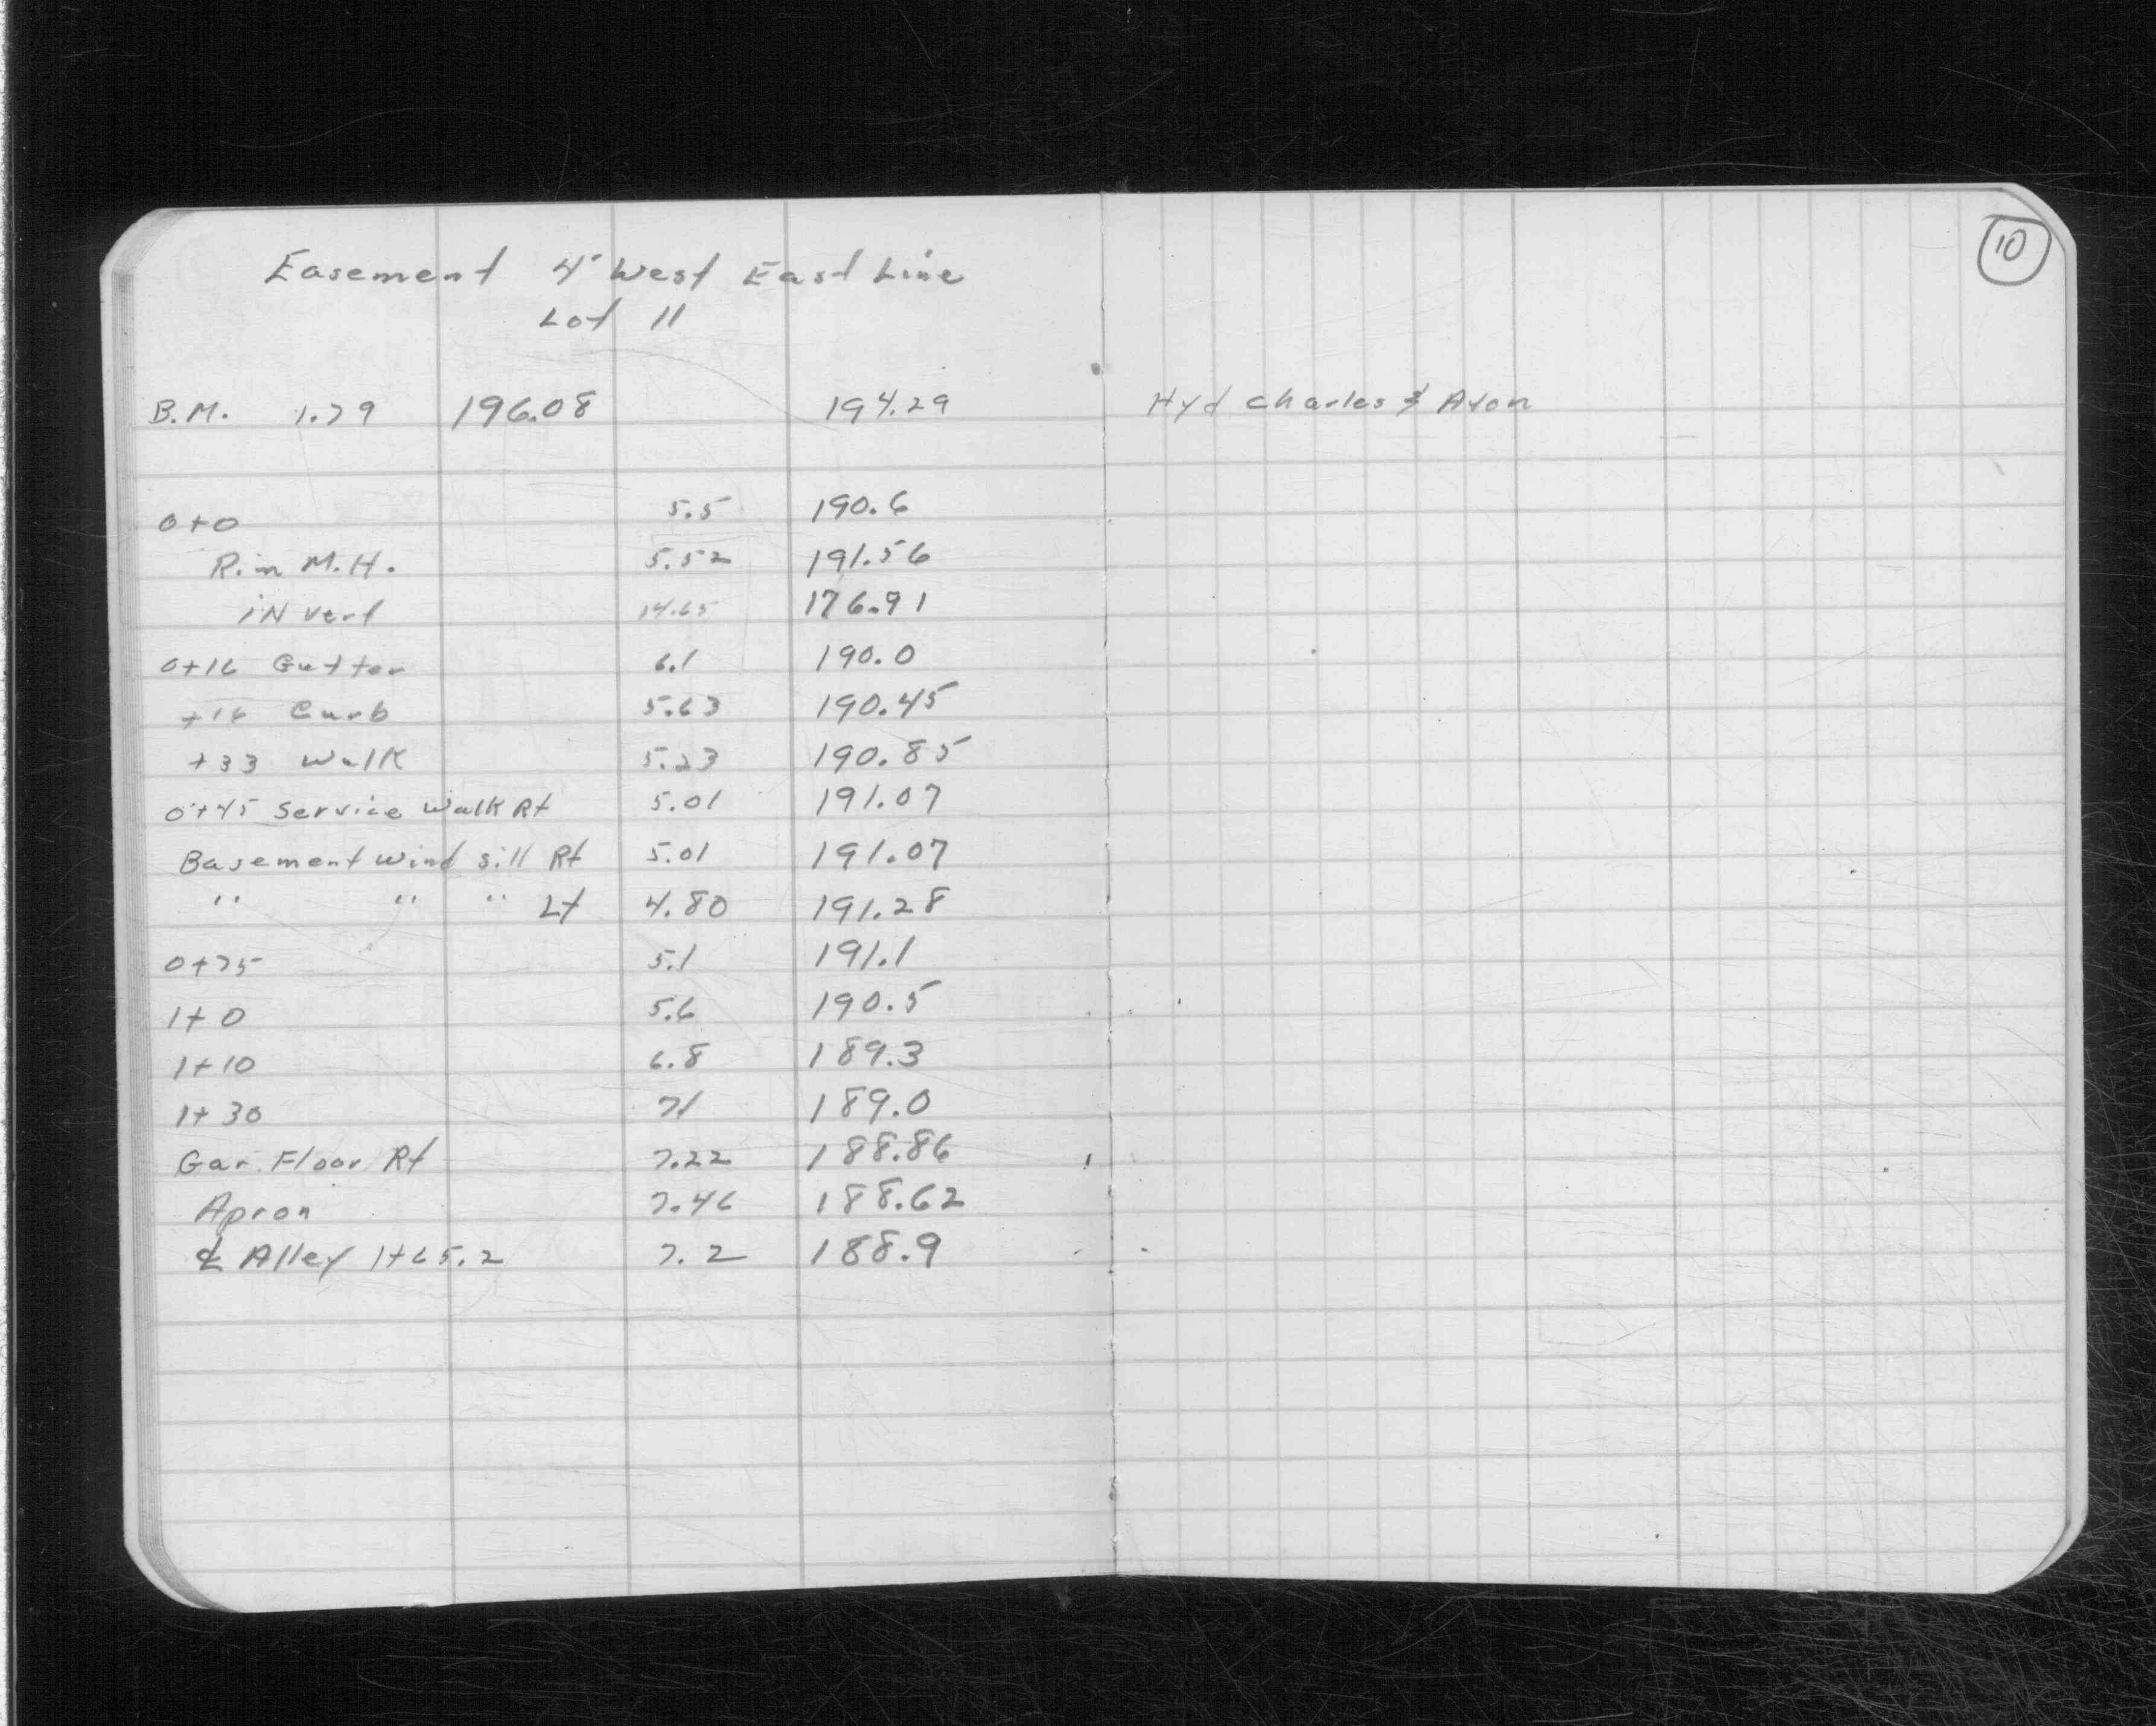 10
Easement 4' West East Line
Lot 11
B.M. 1.79 196.08 194.29 Hyd Charles & Avon
0+0 5.5 190.6
Rim M.H. 5.52 191.56
iNvert 14.65 176.91
0+16 Gutter 6.1 190.0
+16 Curb 5.63 190.45
+33 Walk 5.23 190.85
0+45 Service Walk Rt 5.01 191.07
Basement Wind Sill Rt 5.01 191.07
" " " Lt 4.80 191.28
0+75 5.1 191.1
1+0 5.6 190.5
1+10 6.8 189.3
1+30 7.1 189.0
Gar. Floor Rt 7.22 188.86
Apron 7.46 188.62
℄ Alley 1+65.2 7.2 188.9